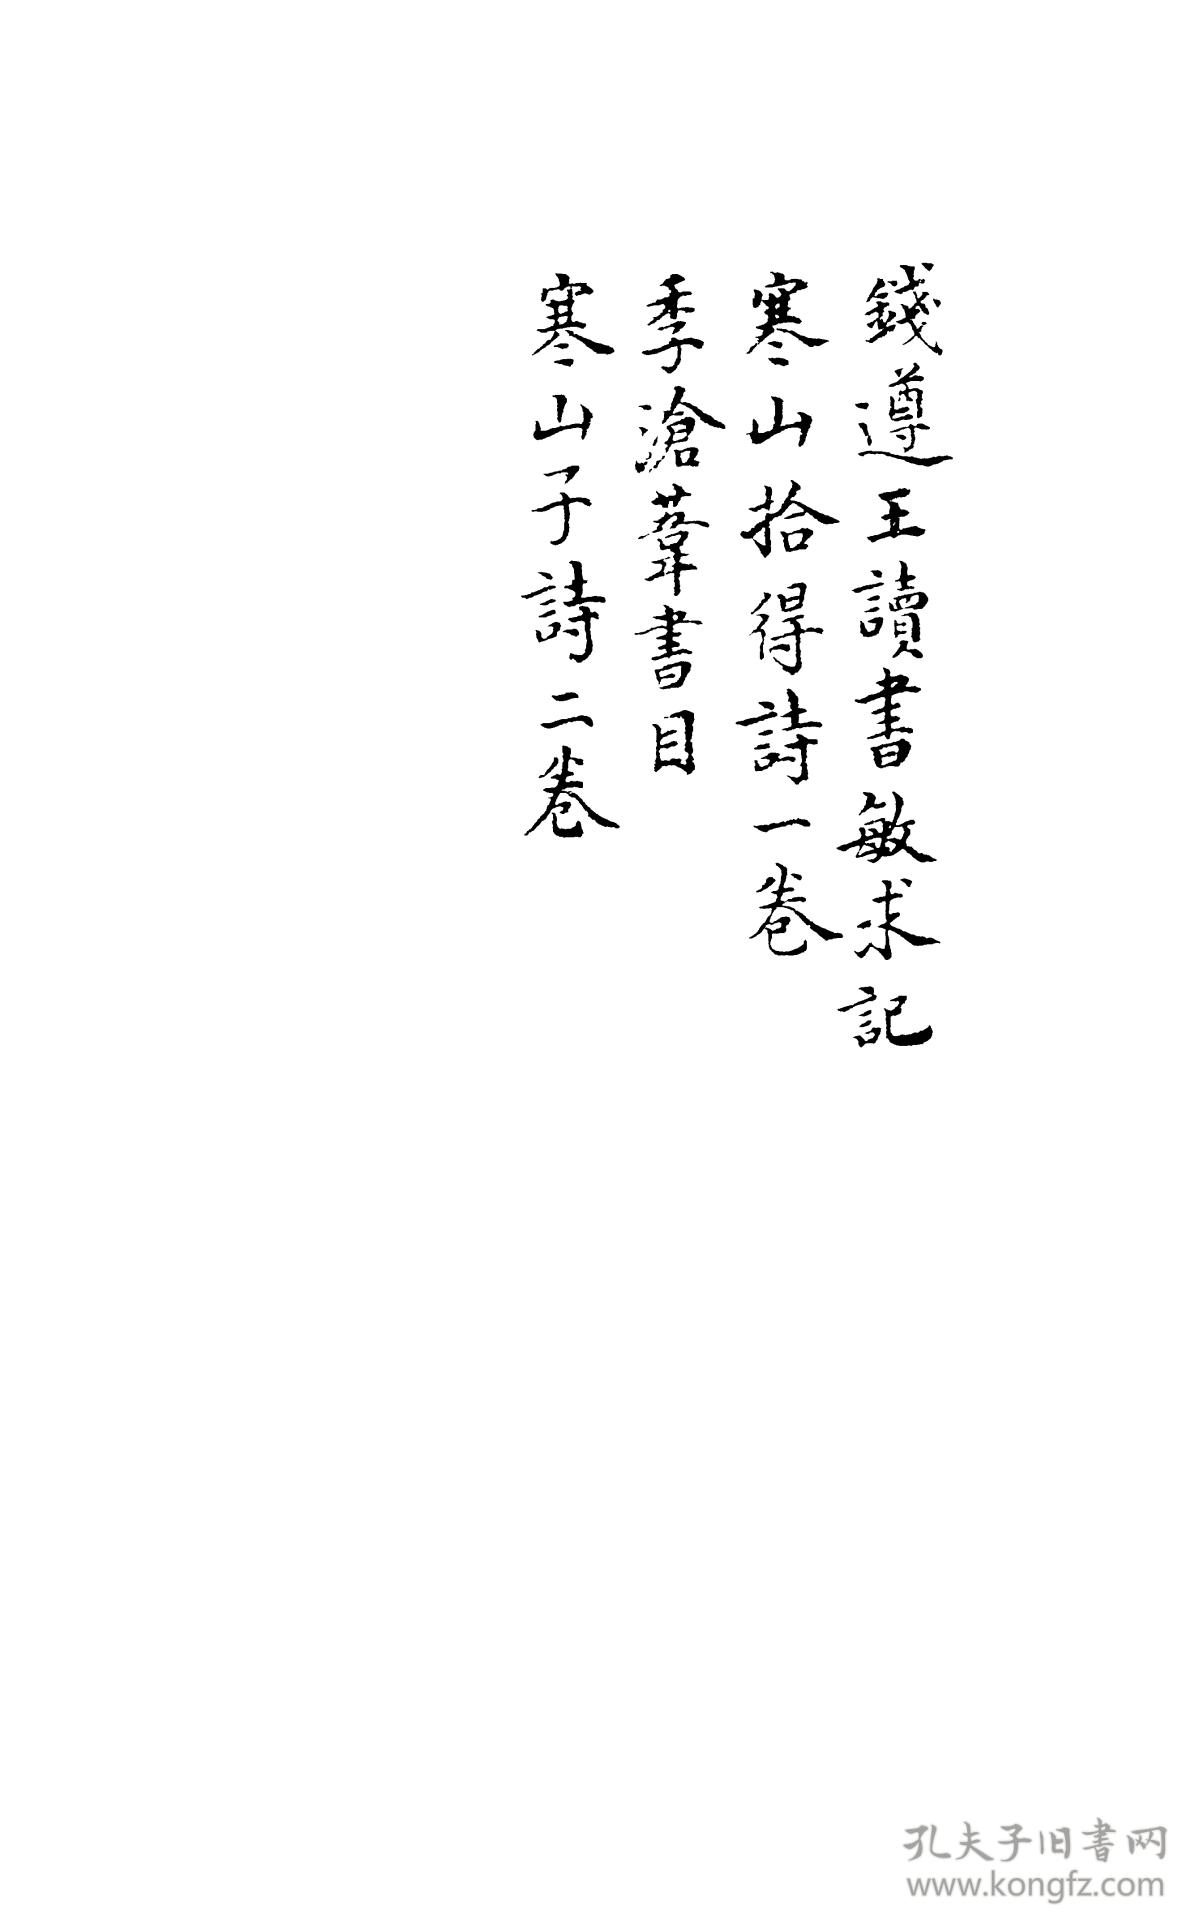 錢遵王讀書敏求記
寒山拾得詩一卷
季滄葦書目
寒山子詩二卷
孔夫子旧書网
www.kongfz.com